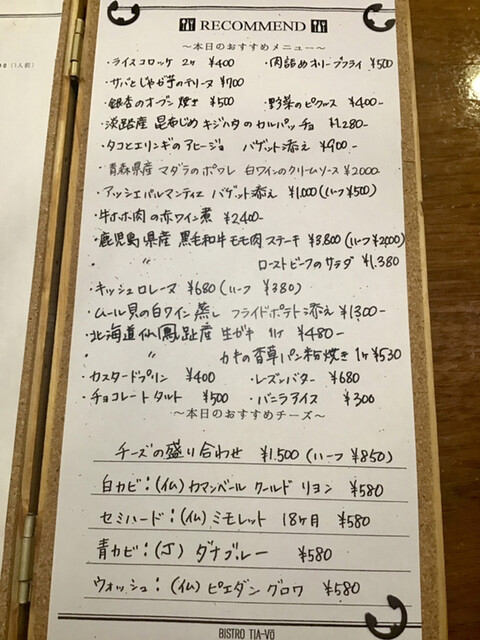 RECOMMEND
～本日のおすすめメニュー～
・ライスコロッケ 2ケ ¥400 ・肉詰めオリーブフライ ¥500
・サバとじゃが芋のテリーヌ ¥700
・銀杏のオーブン焼き ¥500 ・野菜のピクルス ¥400-
・淡路産 昆布じめ キジハタのカルパッチョ ¥1,280-
・タコとエリンギのアヒージョ バゲット添え ¥900-
青森県産 マダラのポワレ 白ワインのクリームソース ¥2,000
・アッシェパルマンティエ バゲット添え ¥1,000 (ハーフ ¥500)
・牛ホホ肉の赤ワイン煮 ¥2,400-
・鹿児島県産 黒毛和牛モモ肉ステーキ ¥3,800 (ハーフ ¥2,000)
・ 〃 ローストビーフのサラダ ¥1,380
・キッシュロレーヌ ¥680 (ハーフ ¥380)
・ムール貝の白ワイン蒸し フライドポテト添え ¥1,300-
・北海道仙鳳趾産 生ガキ 1ケ ¥480-
・ 〃 カキの香草パン粉焼き 1ケ ¥530
・カスタードプリン ¥400 ・レーズンバター ¥680
・チョコレートタルト ¥500 ・バニラアイス ¥300
～本日のおすすめチーズ～
チーズの盛り合わせ ¥1,500 (ハーフ ¥850)
白カビ：(仏) カマンベール クールド リヨン ¥580
セミハード：(仏) ミモレット 18ヶ月 ¥580
青カビ：(J) ダナブルー ¥580
ウォッシュ：(仏) ピエダングロワ ¥580
BISTRO TIA-VŌ